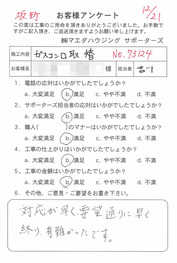 坂町 お客様アンケート 12/21
この度は工事のご用命を頂きありがとうございました。お手数で
すがご記入頂き、ご返送頂きますようお願い申し上げます。
㈱マエダハウジング サポーターズ
工事内容 ガスコンロ取替 No.73124
お客様名 様 担当者
1. 電話の応対はいかがでしたでしょうか?
a. 大変満足 b. 満足 c. やや不満 d. 不満
2. サポーターズ担当者の応対はいかがでしたでしょうか?
a. 大変満足 b. 満足 c. やや不満 d. 不満
3. 職人( )のマナーはいかがでしたでしょうか?
a. 大変満足 b. 満足 c. やや不満 d. 不満
4. 工事の仕上がりはいかがでしたでしょうか?
a. 大変満足 b. 満足 c. やや不満 d. 不満
5. 工事の金額はいかがでしたでしょうか?
a. 大変満足 b. 満足 c. やや不満 d. 不満
6. その他、ご意見・ご要望をお書き下さい。
対応が早く要望通りに早く
終り、有難かったです。